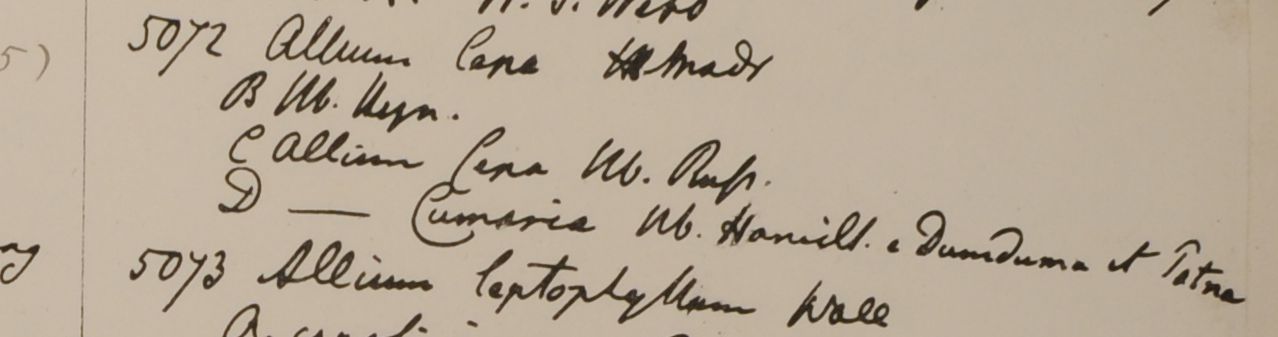 5)
W. S. Webb
5072 Allium Cepa Hb Madr
B Hb. Heyn.
C Allium Cepa Hb. Russ.
D — Cumaria Hb. Hamilt. e Dumduma et Patna
ng
5073 Allium leptophyllum Wall